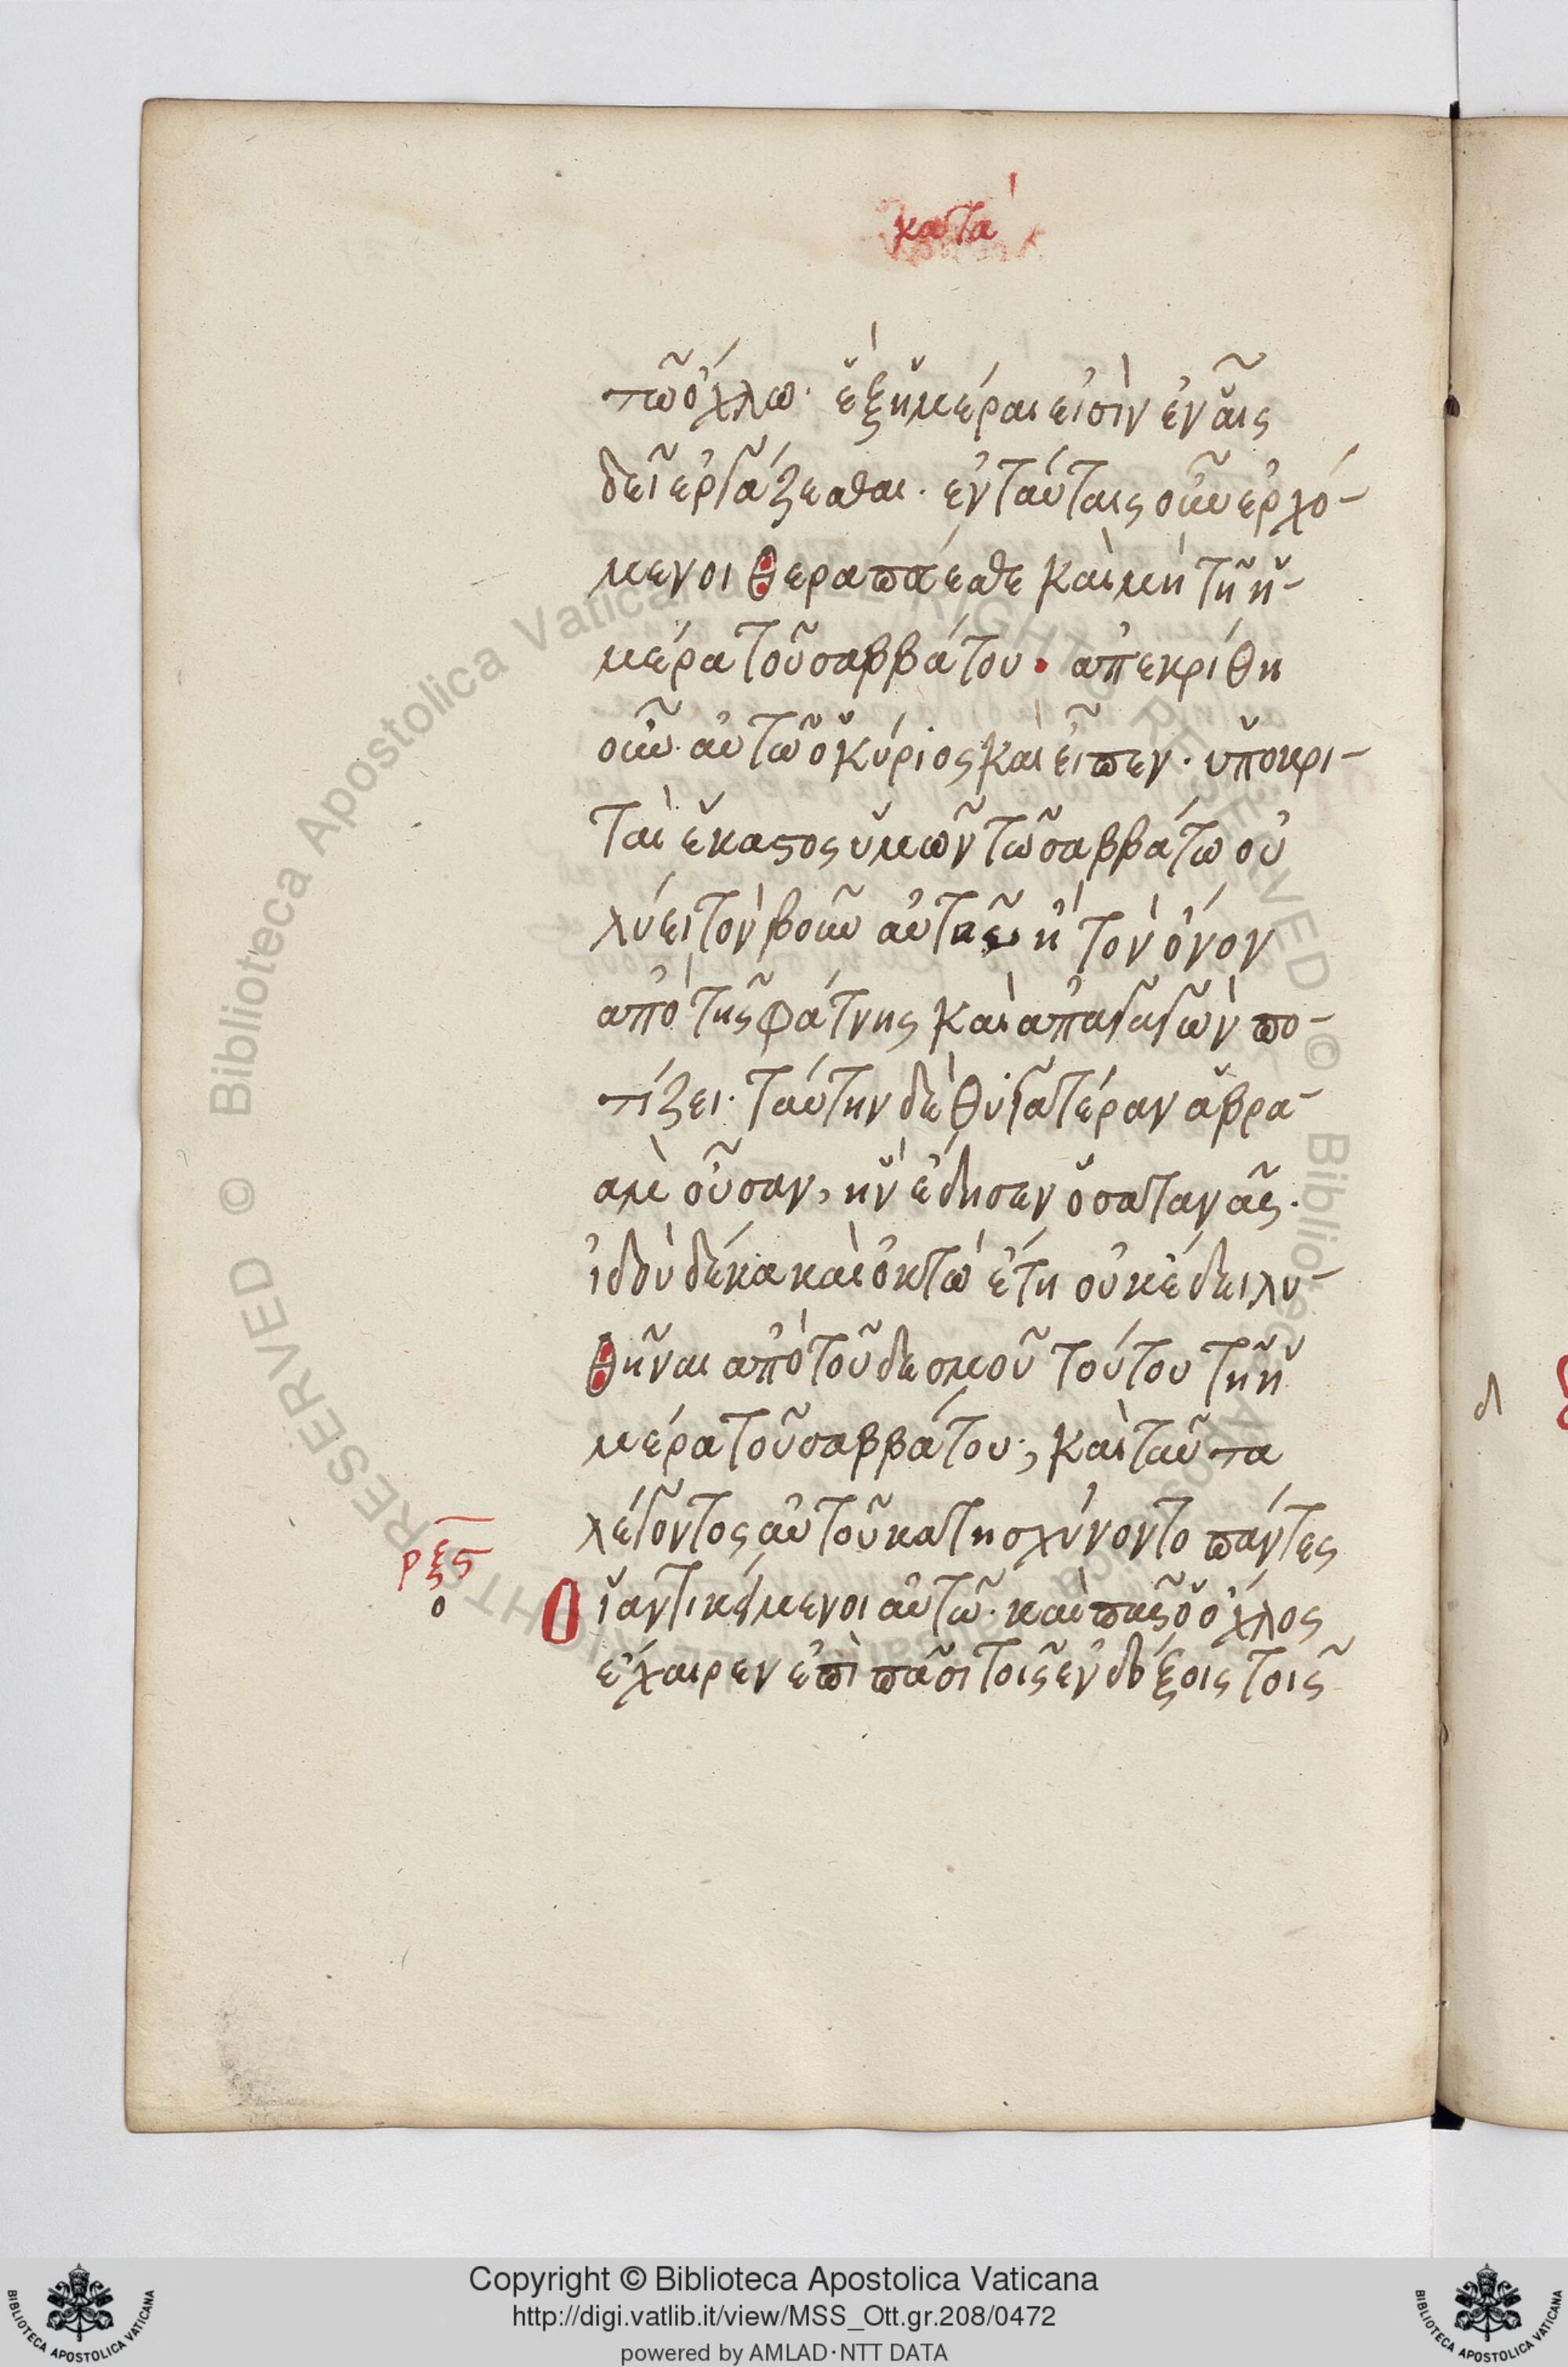 κατὰ
τῶ ὄχλω· ἓξ ἡμέραι εἰσὶν ἐν αἷς
δεῖ ἐργάζεσθαι· ἐν ταύταις οὖν ἐρχό-
μενοι θεραπεύεσθε καὶ μὴ τῆ ἡ-
μέρα τοῦ σαββάτου· ἀπεκρίθη
οὖν αὐτῶ ὁ κύριος καὶ εἶπεν· ὑποκρι-
ταὶ ἕκαστος ὑμῶν τῶ σαββάτω οὐ
λύει τὸν βοῦν αὐτοῦ ἢ τὸν ὄνον
ἀπὸ τῆς φάτνης καὶ ἀπαγαγὼν πο-
τίζει· ταύτην δὲ θυγατέραν ἁβρα-
ὰμ οὖσαν, ἣν ἔδησεν ὁ σατανᾶς·
ἰδοὺ δέκα καὶ ὀκτὼ ἔτη οὐκ ἔδει λυ-
θῆναι ἀπὸ τοῦ δεσμοῦ τούτου τῆ ἡ
μέρα τοῦ σαββάτου; καὶ ταῦτα
λέγοντος αὐτοῦ κατησχύνοντο πάντες
ρξς
ο
Οἱ ἀντικείμενοι αὐτῶ· καὶ πᾶς ὁ ὄχλος
ἔχαιρεν ἐπὶ πᾶσι τοῖς ἐνδόξοις τοῖς
Copyright © Biblioteca Apostolica Vaticana
http://digi.vatlib.it/view/MSS_Ott.gr.208/0472
powered by AMLAD·NTT DATA